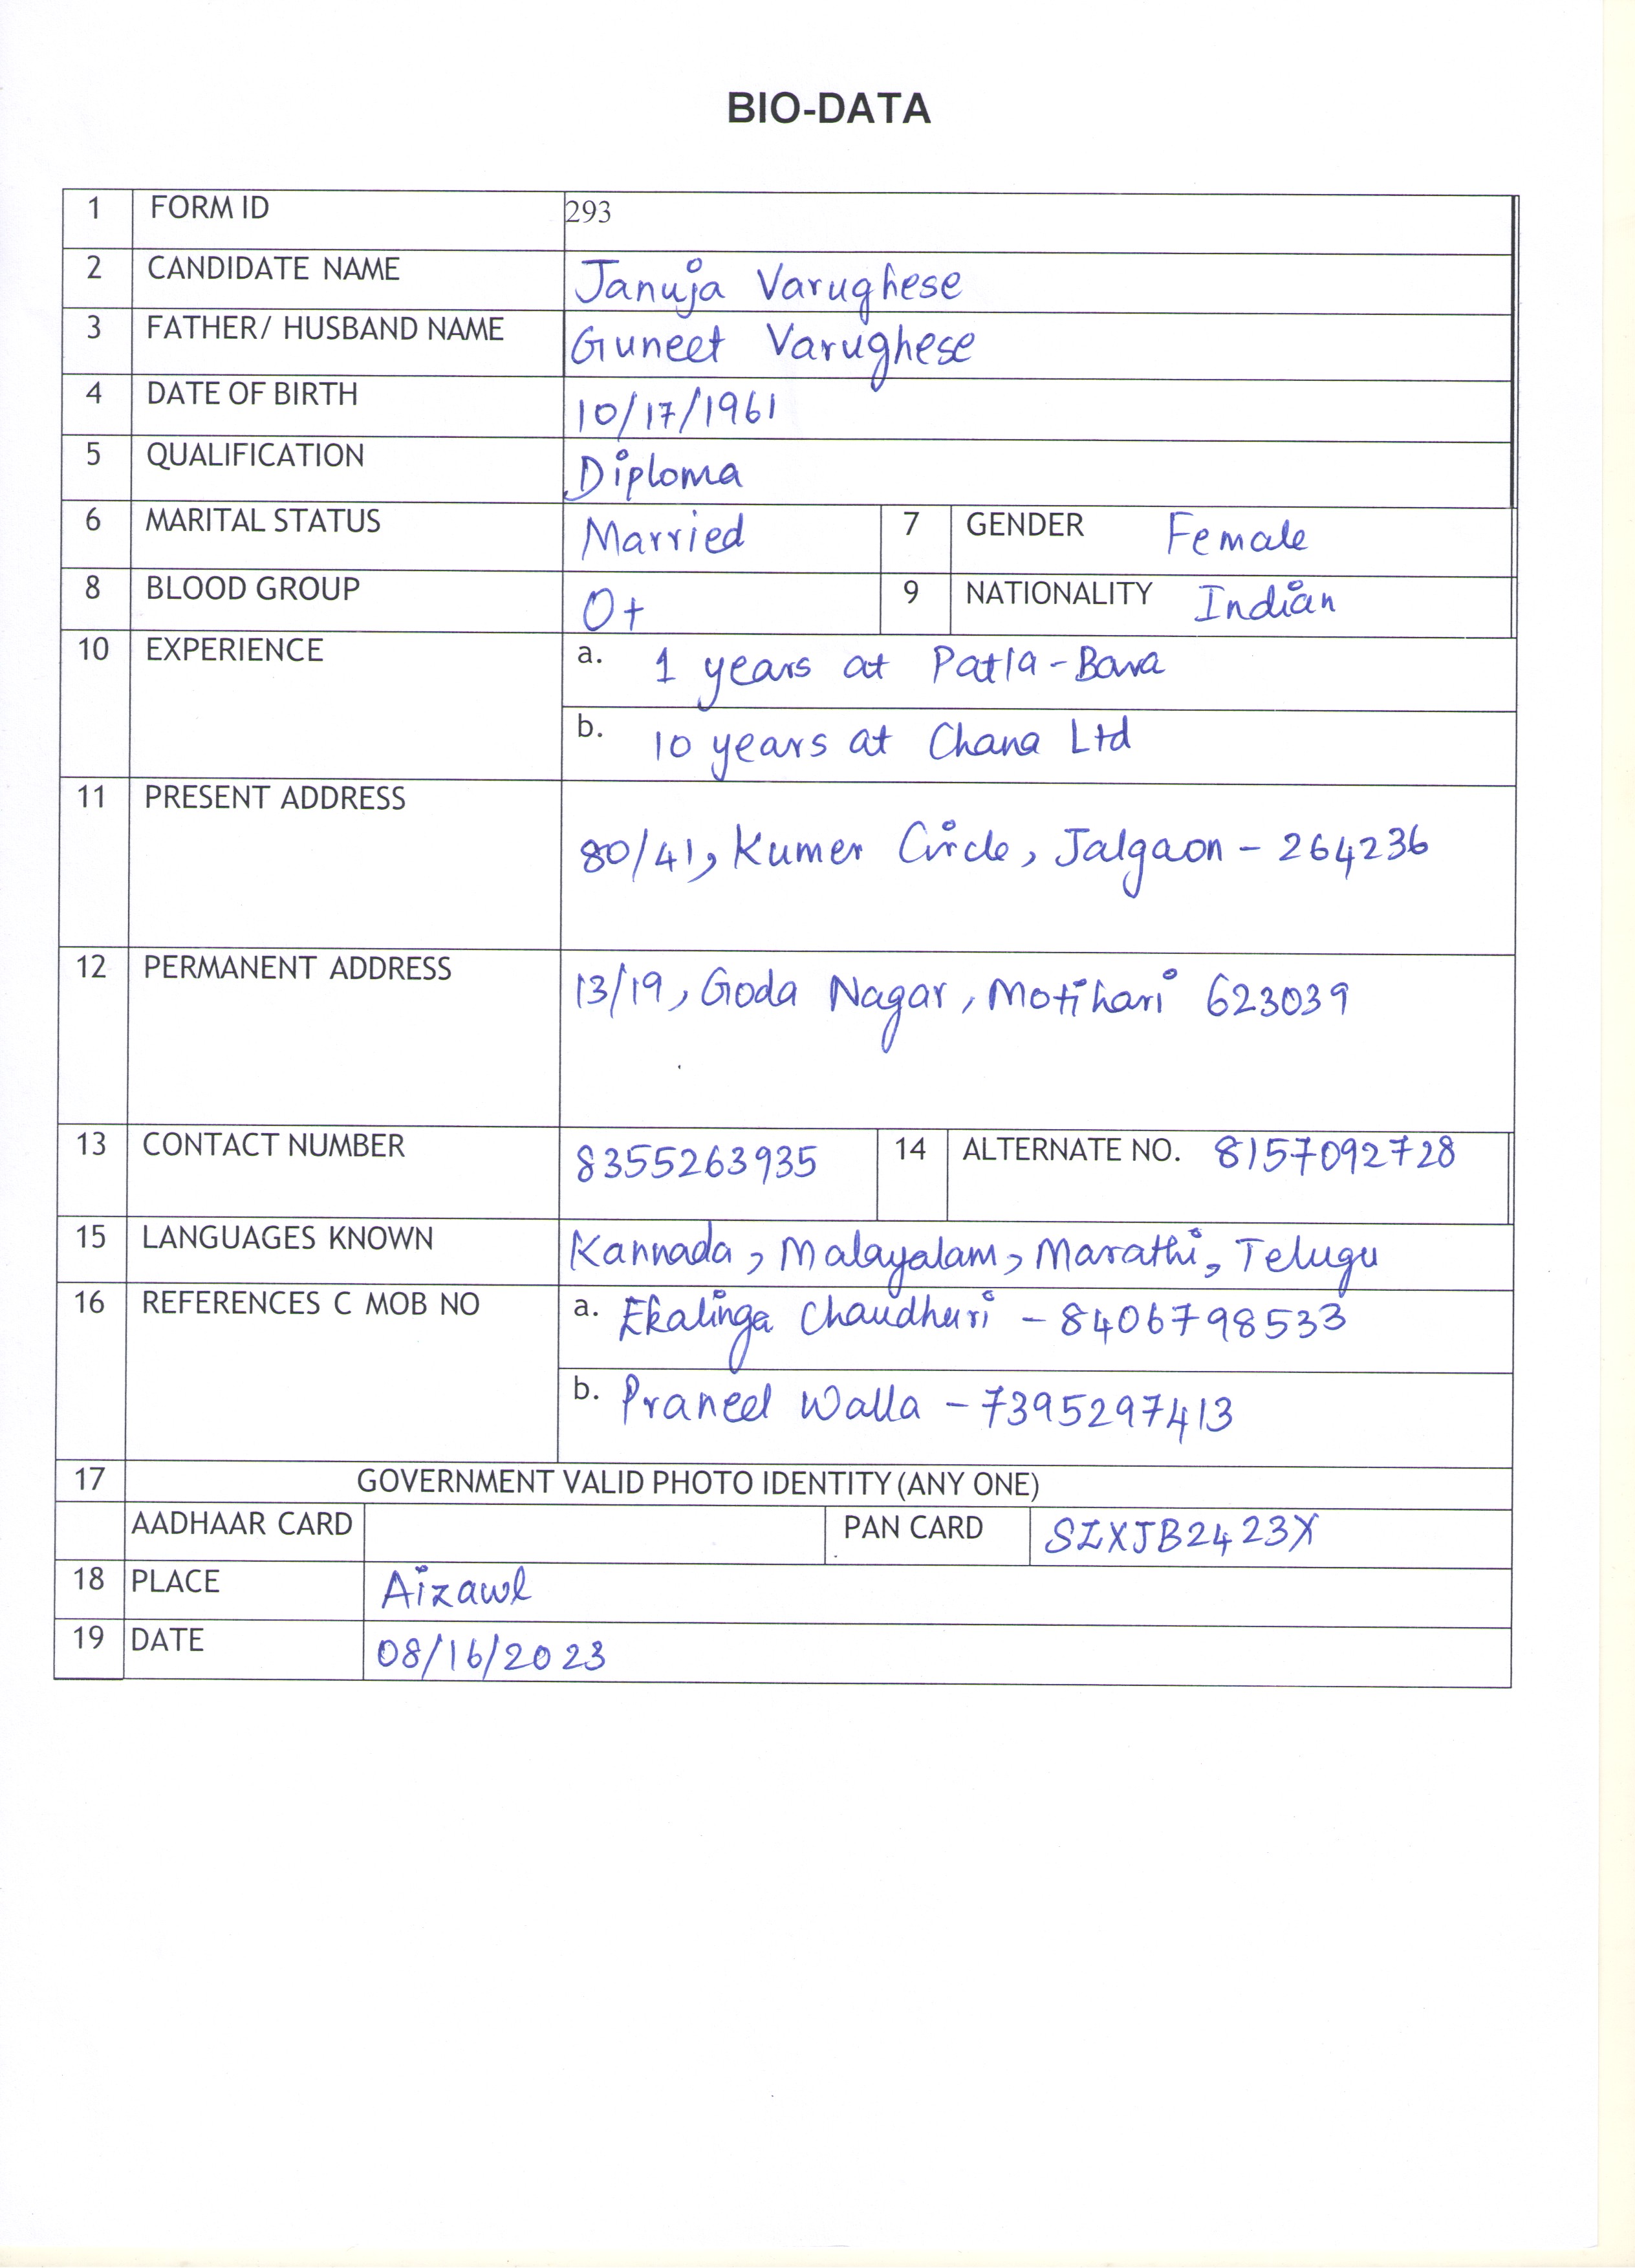 BIO-DATA
1 FORM ID 293
2 CANDIDATE NAME Januja Varughese
3 FATHER/ HUSBAND NAME Guneet Varughese
4 DATE OF BIRTH 10/17/1961
5 QUALIFICATION Diploma
6 MARITAL STATUS Married 7 GENDER Female
8 BLOOD GROUP O+ 9 NATIONALITY Indian
10 EXPERIENCE a. 1 years at Patla-Bava
b. 10 years at Chana Ltd
11 PRESENT ADDRESS
80/41, Kumer Circle, Jalgaon - 264236
12 PERMANENT ADDRESS 13/19, Goda Nagar, Motihari 623039
13 CONTACT NUMBER 8355263935 14 ALTERNATE NO. 8157092728
15 LANGUAGES KNOWN Kannada, Malayalam, Marathi, Telugu
16 REFERENCES C MOB NO a. Ekalinga Chaudhuri - 8406798533
b. Praneel Walla - 7395297413
17 GOVERNMENT VALID PHOTO IDENTITY (ANY ONE)
AADHAAR CARD PAN CARD SZXJB2423X
18 PLACE Aizawl
19 DATE 08/16/2023